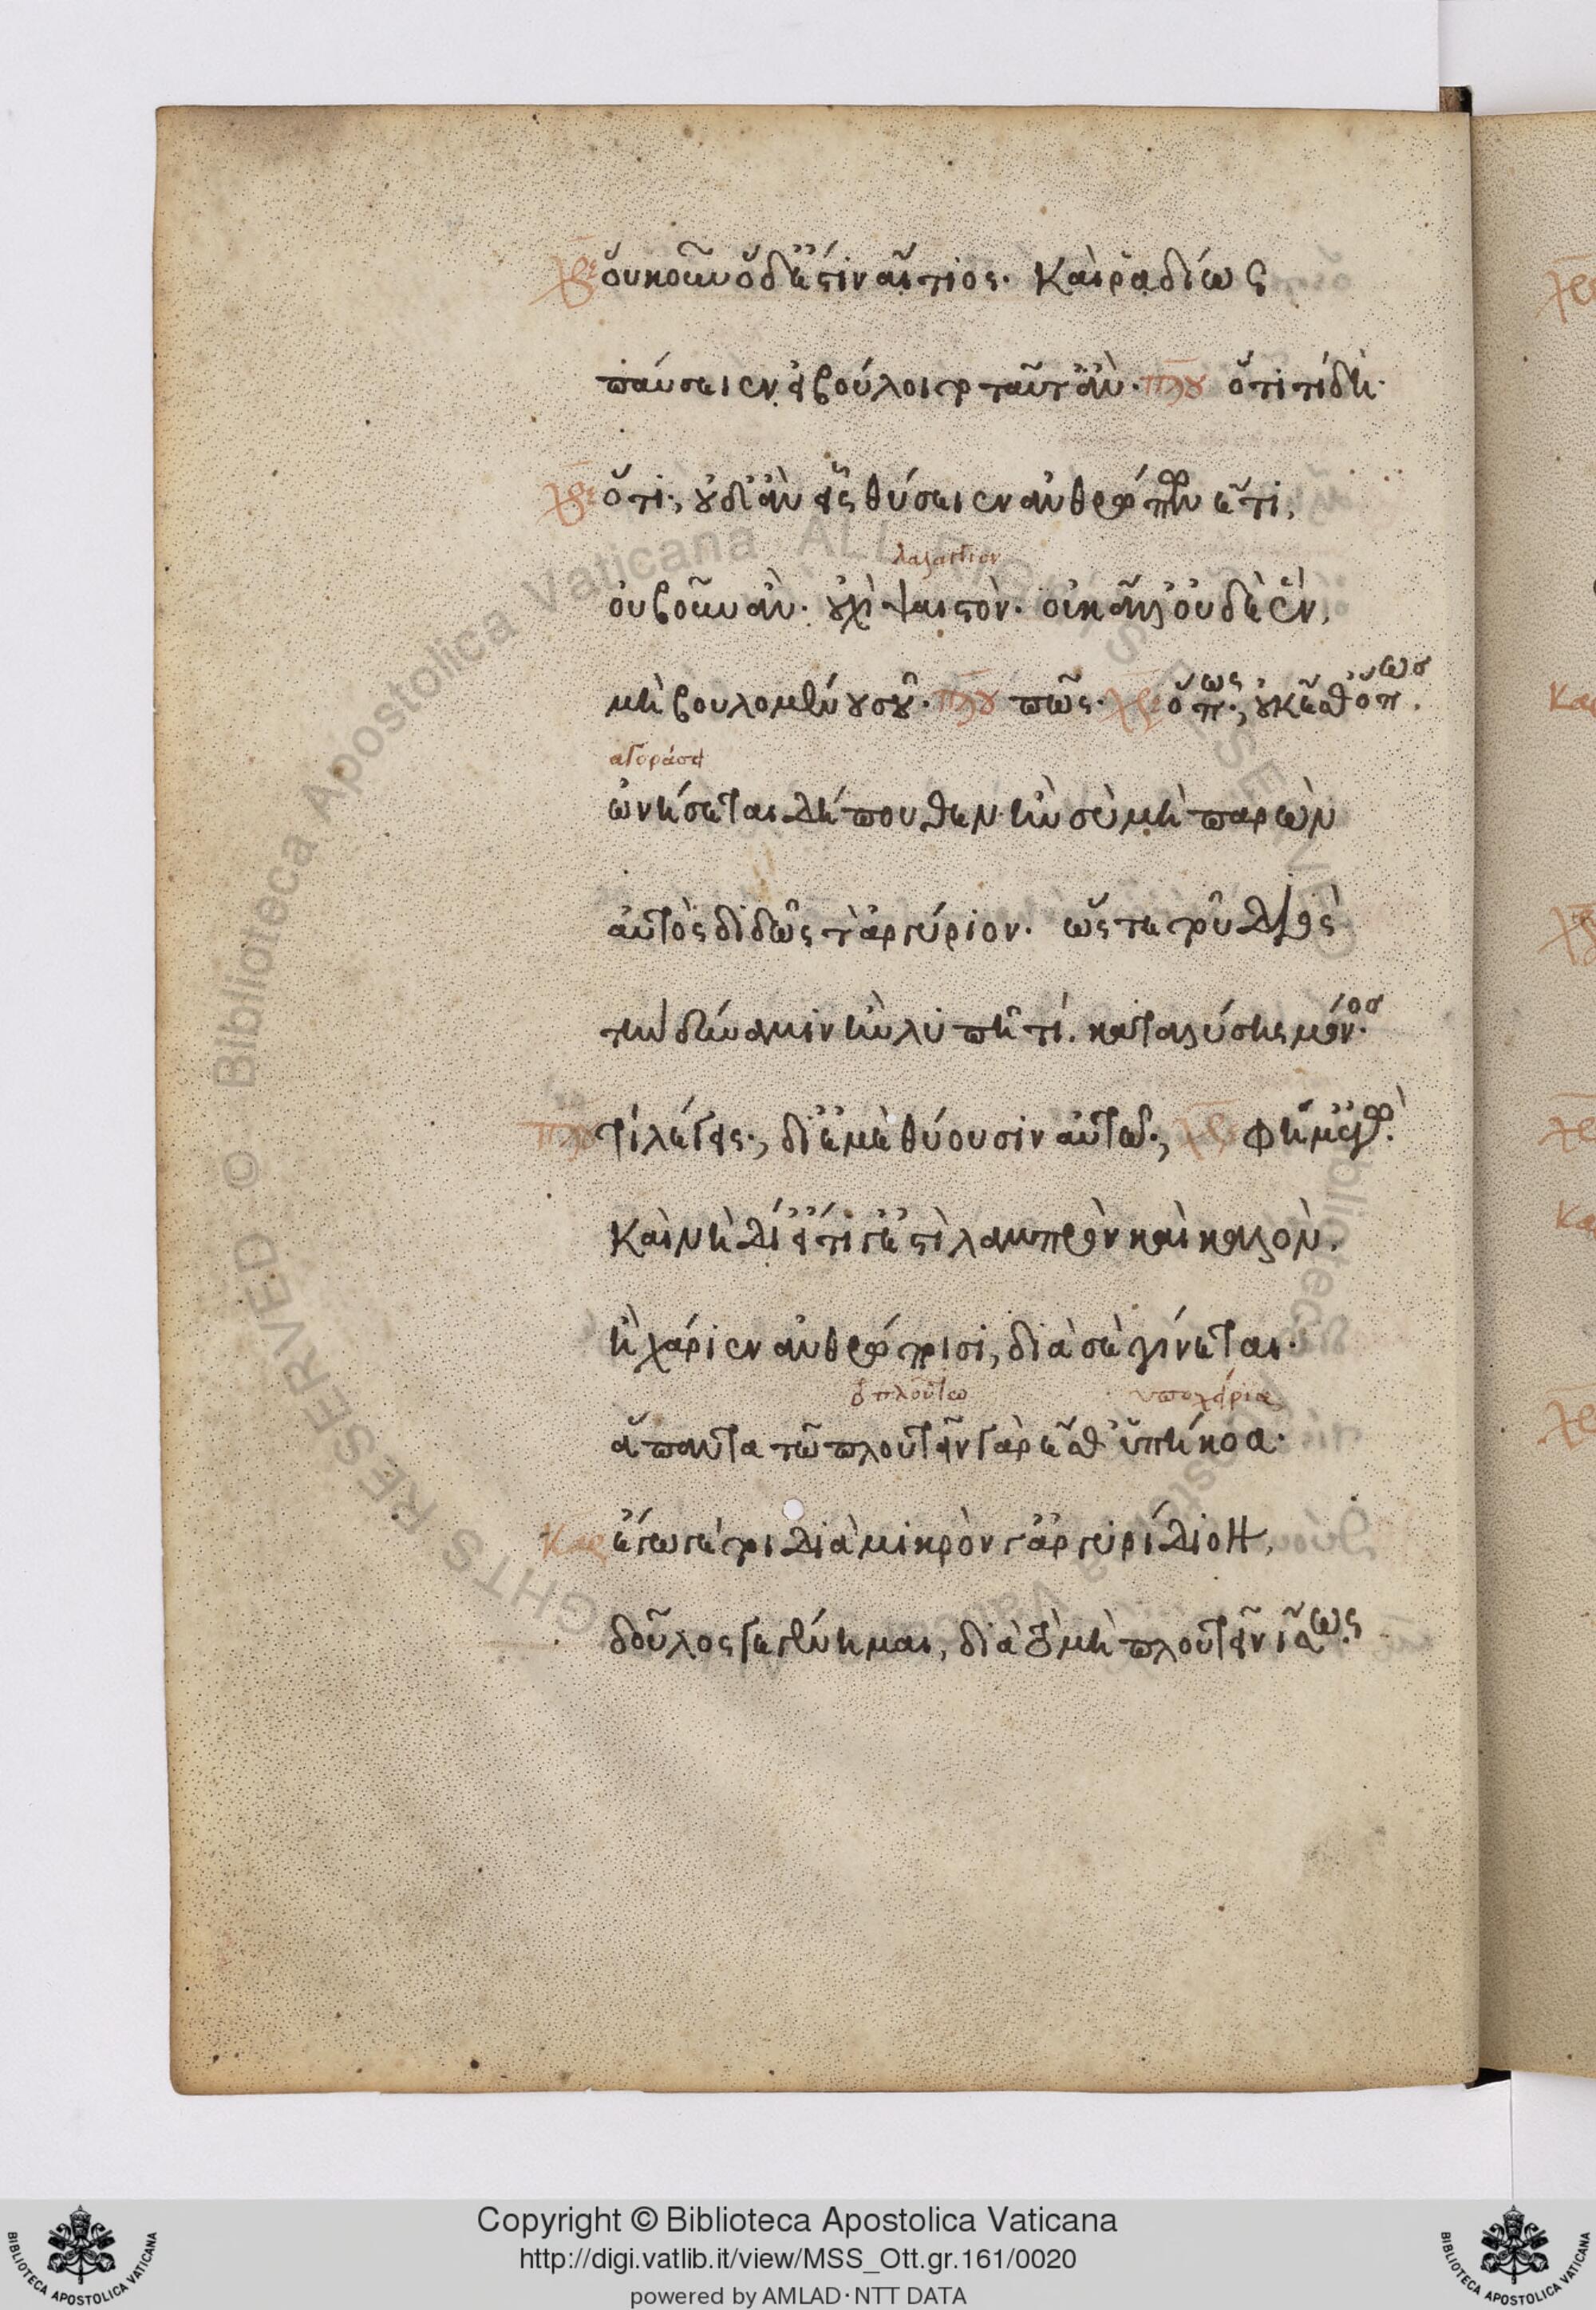 χρε οὐκοῦν ὅδ' ἐστὶν αἴτιος· καὶ ῥαδίως
παύσειεν εἰ βούλοιτο ταῦτ' ἄν· πλου ὅτι τί δή·
χρε ὅτι, οὐδ' ἂν εἷς θύσειεν ἀνθρώπων ἔτι,
λαλάγγιον
οὐ βοῦν ἄν· οὐχὶ ψαιστόν· οὐκ ἄλλ' οὐδὲ ἕν,
μὴ βουλομένου σοῦ· πλου πῶς· χρε ὅπως, οὐκ ἔσθ' ὅπως
ἀγοράσει
ὠνήσεται δήπουθεν ἢν σὺ μὴ παρὼν
αὐτὸς διδῷς τἀργύριον· ὥστε τοῦ Διὸς
τὴν δύναμιν ἢν λυπῇ τί, καταλύσῃς μόνος·
πλου τί λέγεις, δι' ἐμὲ θύουσιν αὐτῷ, χρε φήμ' ἐγώ.
καὶ νὴ Δί' εἴ τί γ' ἐστὶ λαμπρὸν καὶ καλὸν,
ἢ χάριεν ἀνθρώποισι, διὰ σὲ γίνεται·
ὁ πλούτω ὑποχείρια
ἅπαντα τῷ πλουτεῖν γὰρ ἔσθ' ὑπήκοα·
καρ ἔγωγέ τοι διὰ μικρὸν ἀργυρίδιον,
δοῦλος γεγένημαι, διὰ τὸ μὴ πλουτεῖν ἴσως.
Copyright © Biblioteca Apostolica Vaticana
http://digi.vatlib.it/view/MSS_Ott.gr.161/0020
powered by AMLAD·NTT DATA
BIBLIOTECA APOSTOLICA VATICANA
BIBLIOTECA APOSTOLICA VATICANA